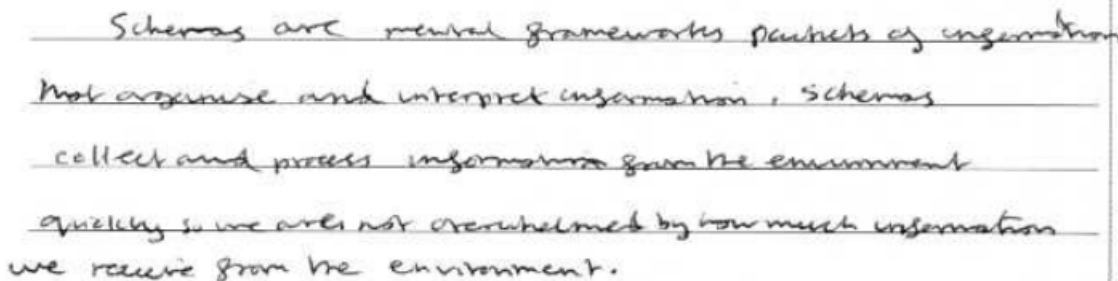 Schemas are mental frameworks packets of information
that organise and interpret information. Schemas
collect and process information from the environment
quickly so we are not overwhelmed by how much information
we receive from the environment.